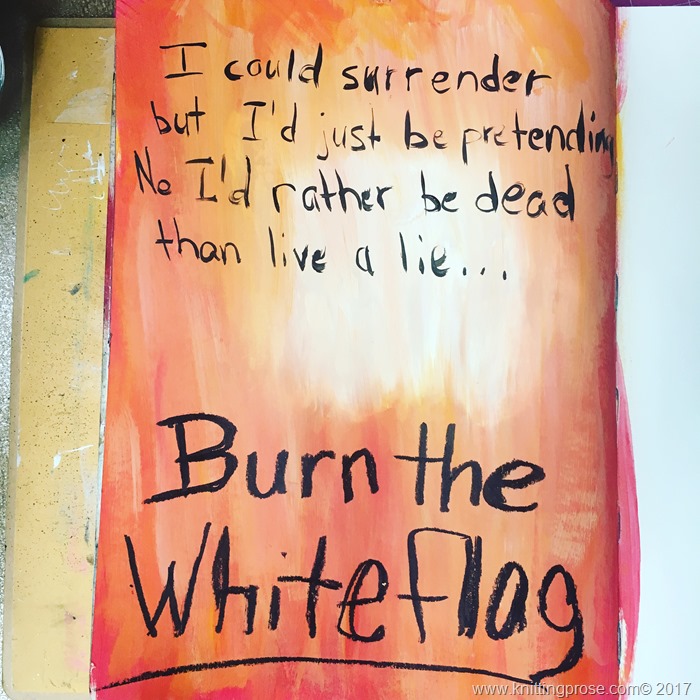 I could surrender
but I'd just be pretending
No I'd rather be dead
than live a lie...
Burn the
White flag
www.knittingprose.com© 2017